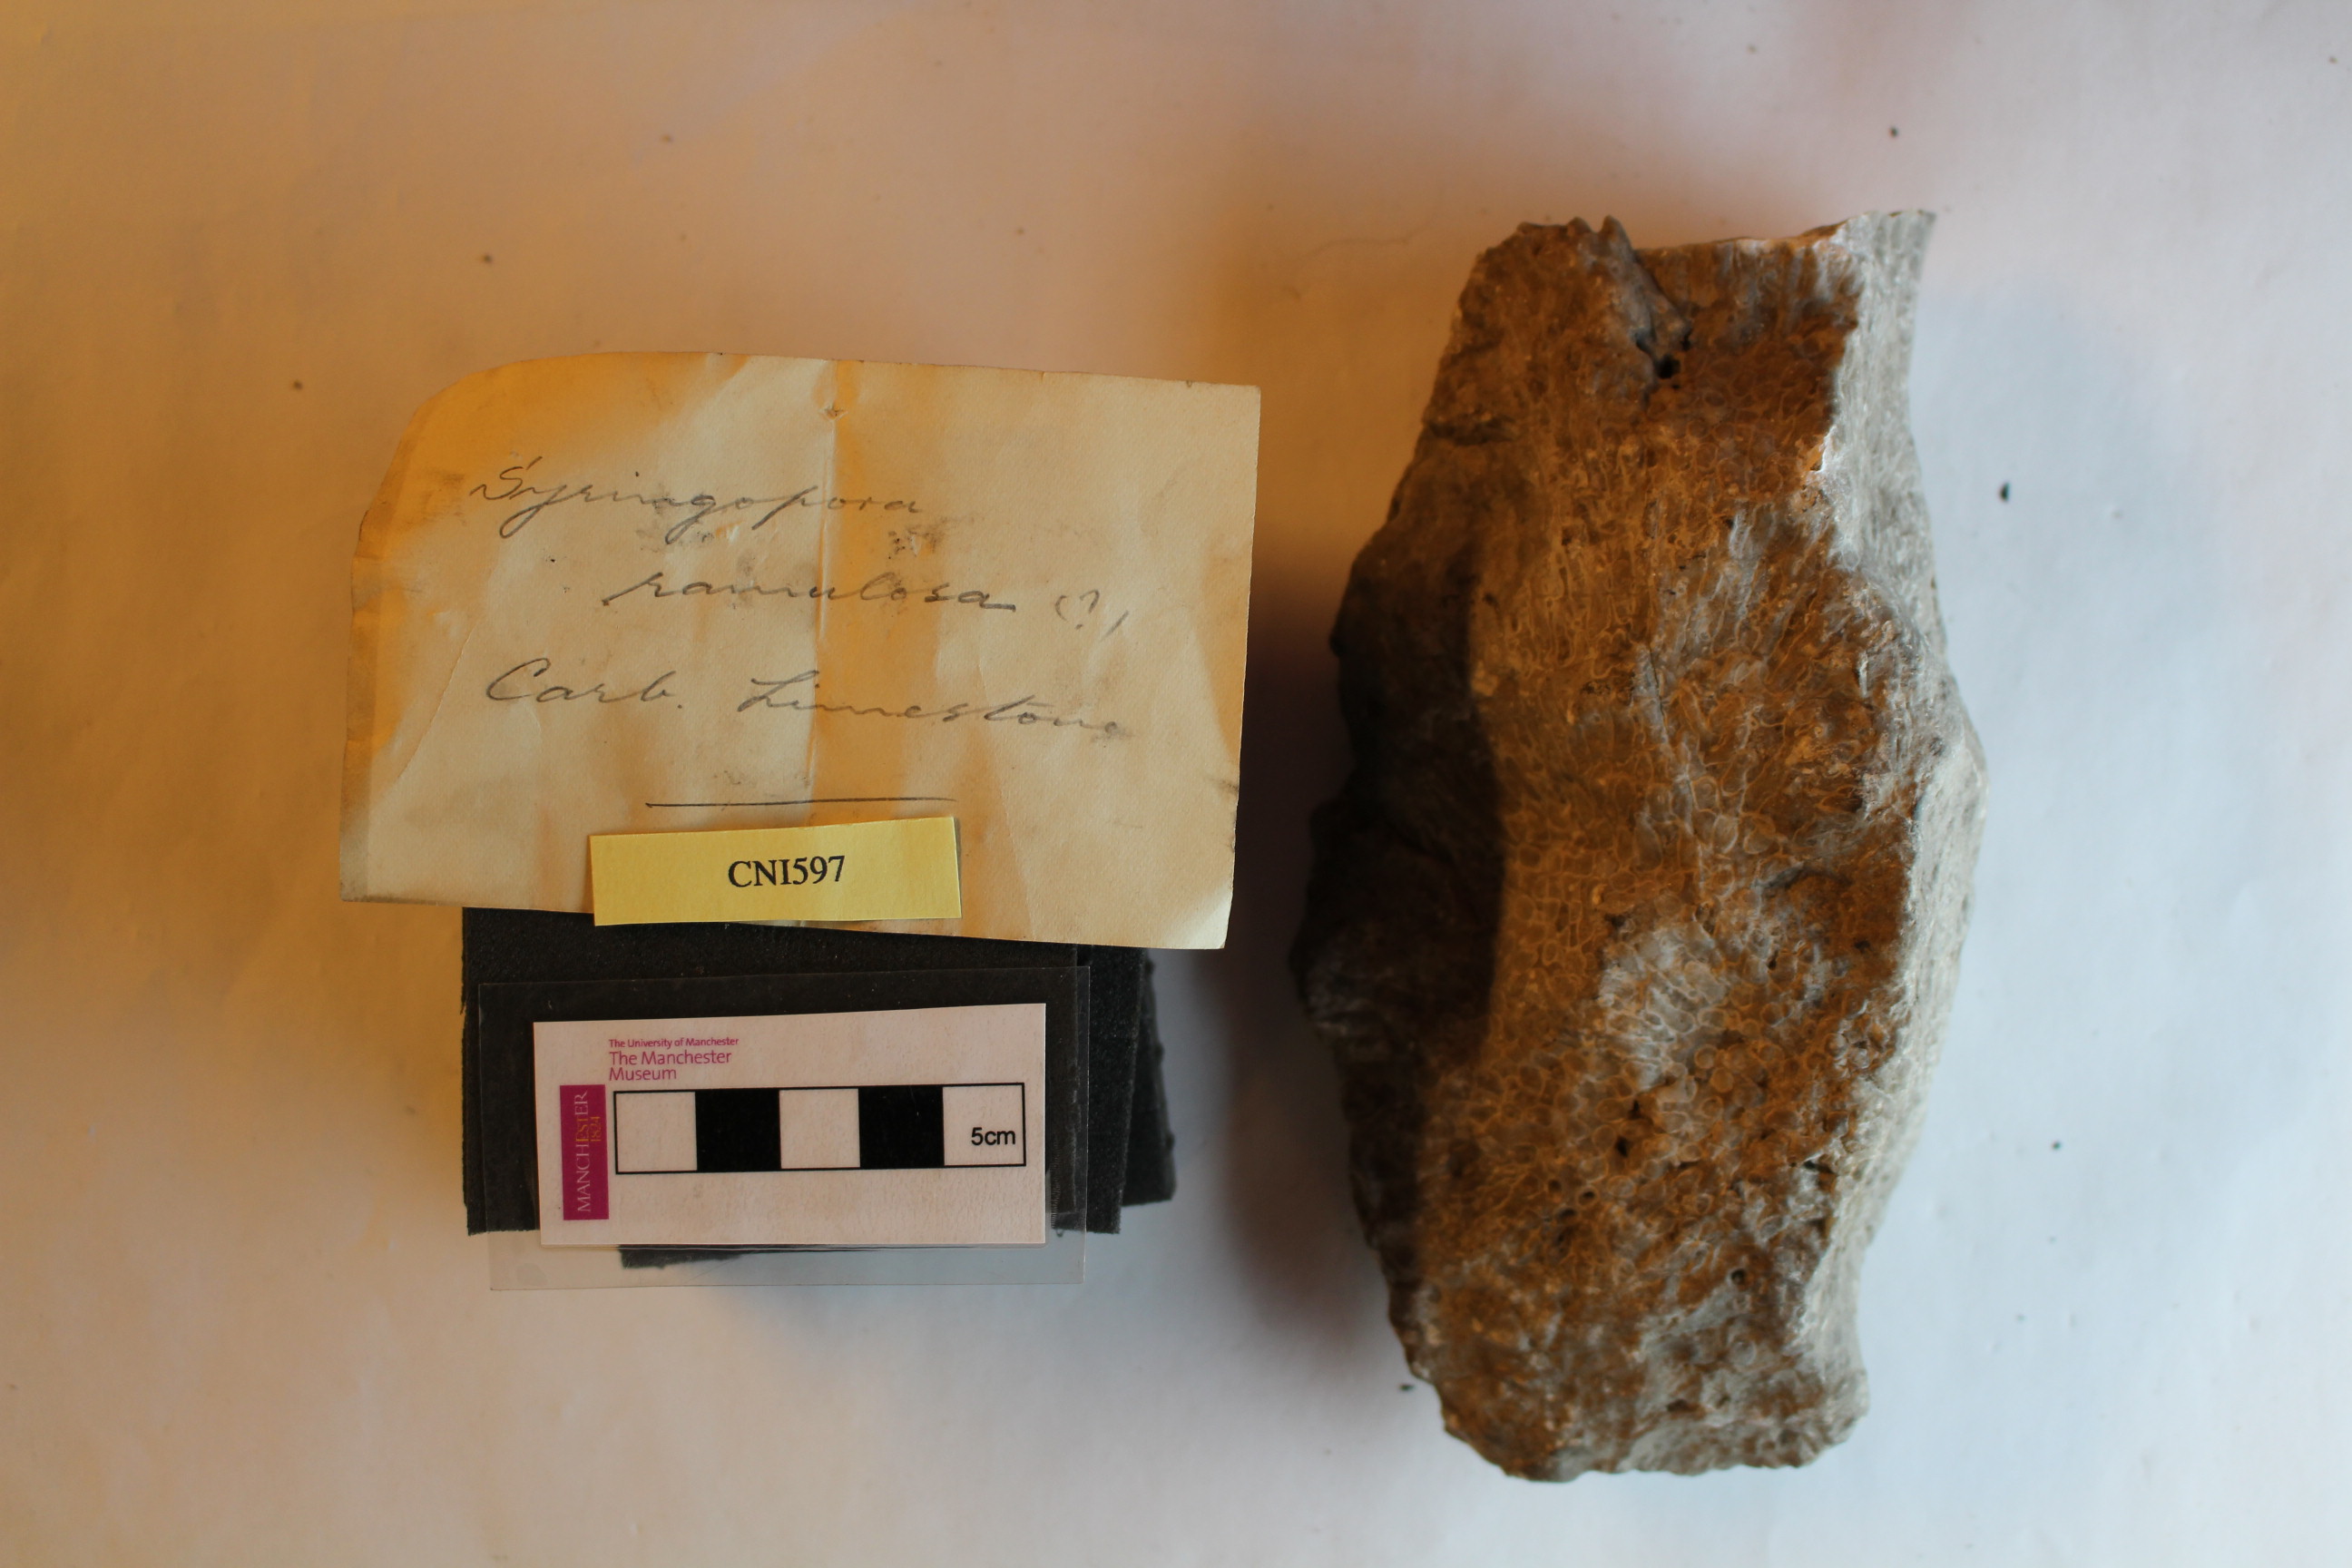 Syringopora
ramulosa (?)
Carb. Limestone
CN1597
5cm
The University of Manchester
The Manchester
Museum
MANCHESTER
1824